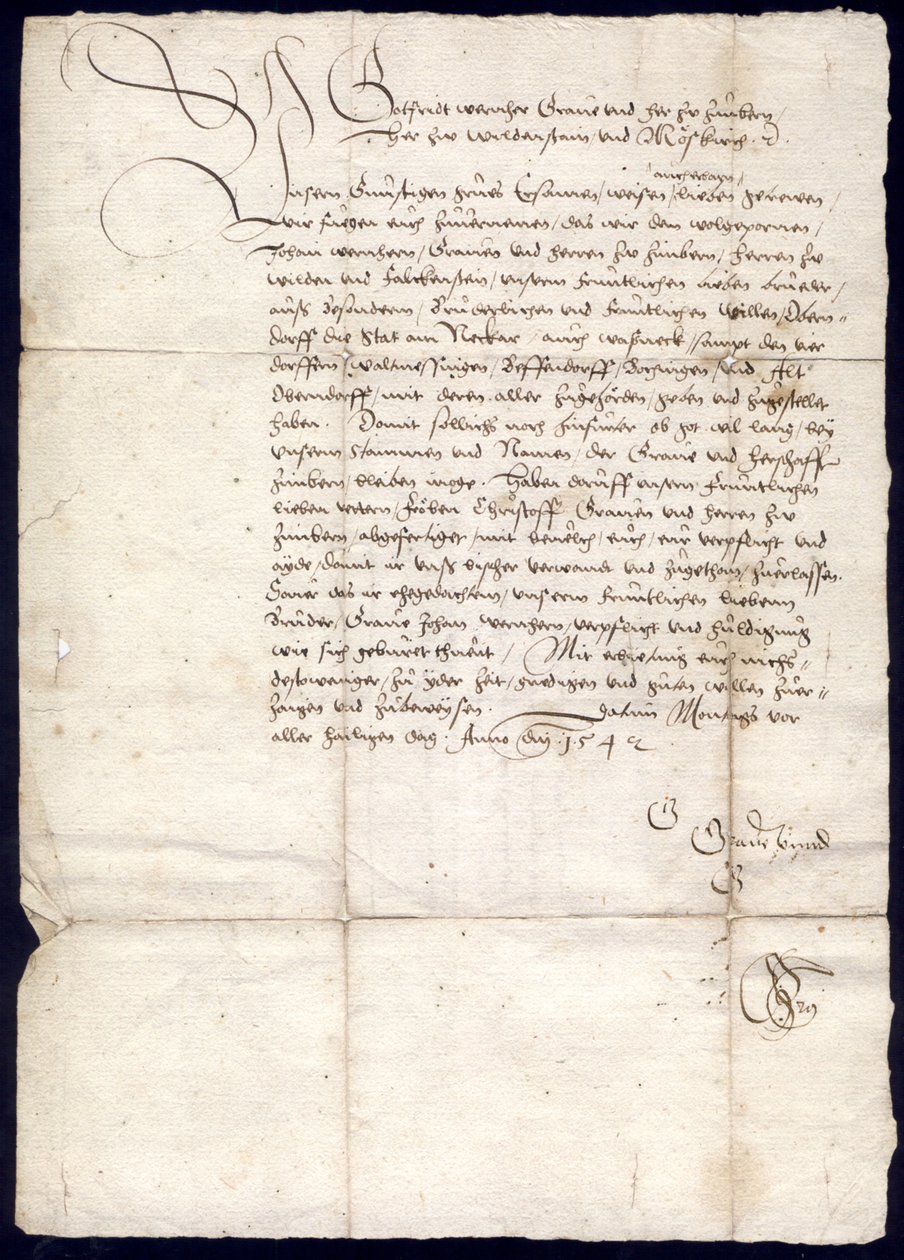 Gotfridt wernher Graue vnd her zw zimbern /
Her zw wildenstain vnd Möskirch
auch ersam /
Vnsern Günstigen grus Ersamen / weisen / lieben getrewen /
wir fuegen euch zuuernemen / das wir dem wolgepornen /
Johan wernhern / Grauen vnd herren zw zimbern / herren zw
wilden vnd Falckenstein / vnserm fruntlichen lieben brueder /
auss besondern / bruderlichen vnd fruntlichen willen / Obern=
dorff die Stat am Neckar / auch wasneck / sampt den vier
dorffern / waltmessingen / Beffendorff / Bochingen / vnd Alt
Oberndorff / mit deren aller zugehörden / geben vnd zugestellet
haben . Damit sollichs noch hinfurter ob got wil lang / bey
vnserm Stammen vnd Namen / der Graue vnd herschafft
zimbern / bleiben möge . Haben daruff vnsern fruntlichen
lieben vettern / Fröben Christoff Grauen vnd herren zw
zimbern / abgefertiget / mit beuelch / euch / eur verpflicht vnd
ayde / damit ir vnss bisher verwandt vnd zugethan / zuerlassen .
Dauer das ir ehegedachtem / vnserm fruntlichen liebenn
Bruder / Graue Johan wernhern / verpflicht vnd huldigung
wie sich geburet thuent / Mit erbietung euch nichs=
destoweniger / zu yder zeit / gnedigen vnd guten willen zuer=
zaigen vnd zubeweysen . datum Montags vor
aller hailigen dag . Anno dni . 1542
G
Graue vnnd
G